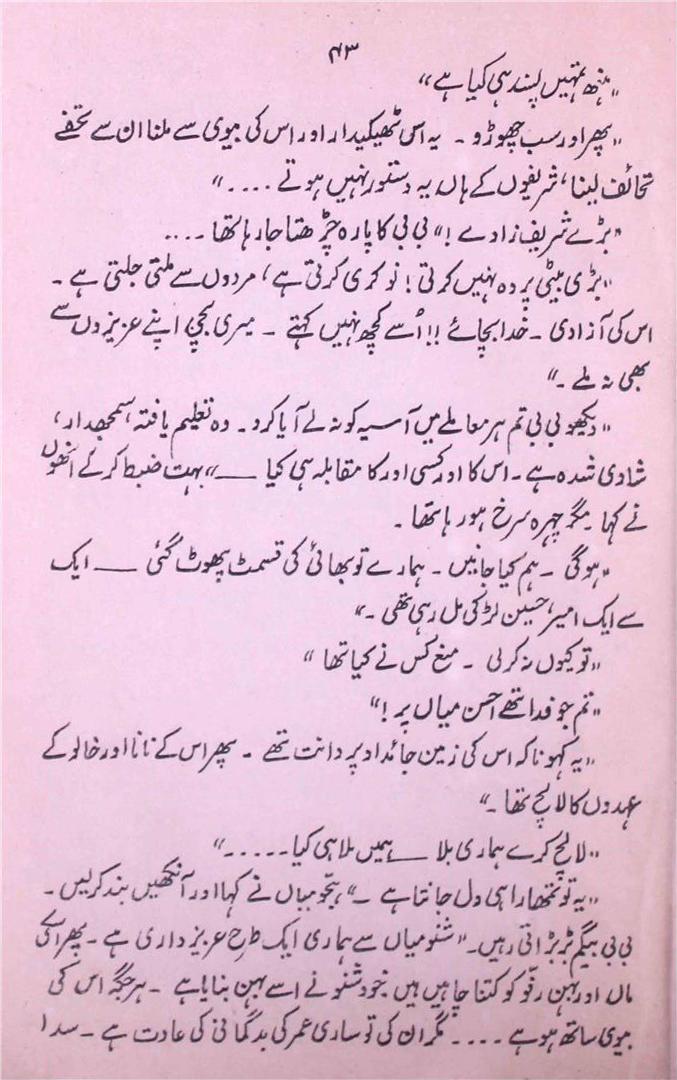 ۴۳
”ہنھ تمہیں پسند ہی کیا ہے“
”پھر اور سب چھوڑو ۔ یہ اس ٹھیکیدار اور اس کی بیوی سے ملنا ان سے تحفے
تحائف لینا، شریفوں کے ہاں یہ دستور نہیں ہوتے ....“
”بڑے شریف زادے !“ بی بی کا پارہ چڑھتا جا رہا تھا ۔...
”بڑی بیٹی پردہ نہیں کرتی! نوکری کرتی ہے، مردوں سے ملتی جلتی ہے ۔
اس کی آزادی ۔ خدا بچائے !! اُسے کچھ نہیں کہتے ۔ میری بچی اپنے عزیزوں سے
بھی نہ ملے ۔“
”دیکھو بی بی تم ہر معاملے میں آسیہ کو نہ لے آیا کرو ۔ وہ تعلیم یافتہ، سمجھدار،
شادی شدہ ہے ۔ اس کا اور کسی اور کا مقابلہ ہی کیا ——“ بہت ضبط کر کے انھوں
نے کہا مگر چہرہ سرخ ہو رہا تھا ۔
”ہوگی ۔ ہم کیا جانیں ۔ ہمارے تو بھائی کی قسمت پھوٹ گئی —— ایک
سے ایک امیر، حسین لڑکی مل رہی تھی ۔“
”تو کیوں نہ کرلی ۔ منع کس نے کیا تھا “
”تم جو فدا تھے احسن میاں پر !“
”یہ کہو نا کہ اس کی زمین جائداد پر دانت تھے ۔ پھر اس کے نانا اور خالو کے
عہدوں کا لالچ تھا ۔“
”لالچ کرے ہماری بلا —— ہمیں ملا ہی کیا .....“
”یہ تو تمھارا ہی دل جانتا ہے ۔“ ہجو میاں نے کہا اور آنکھیں بند کرلیں ۔
بی بی بیگم بڑبڑاتی رہیں۔ ”شنو میاں سے ہماری ایک طرح عزیز داری ہے ۔ پھر اسکی
ماں اور بہن رفّو کو کتنا چاہیں ہیں خود شنو نے اسے بہن بنایا ہے ۔ ہر جگہ اس کی
بیوی ساتھ ہوہے .... مگر ان کی تو ساری عمر کی بدگمانی کی عادت ہے ۔ سدا